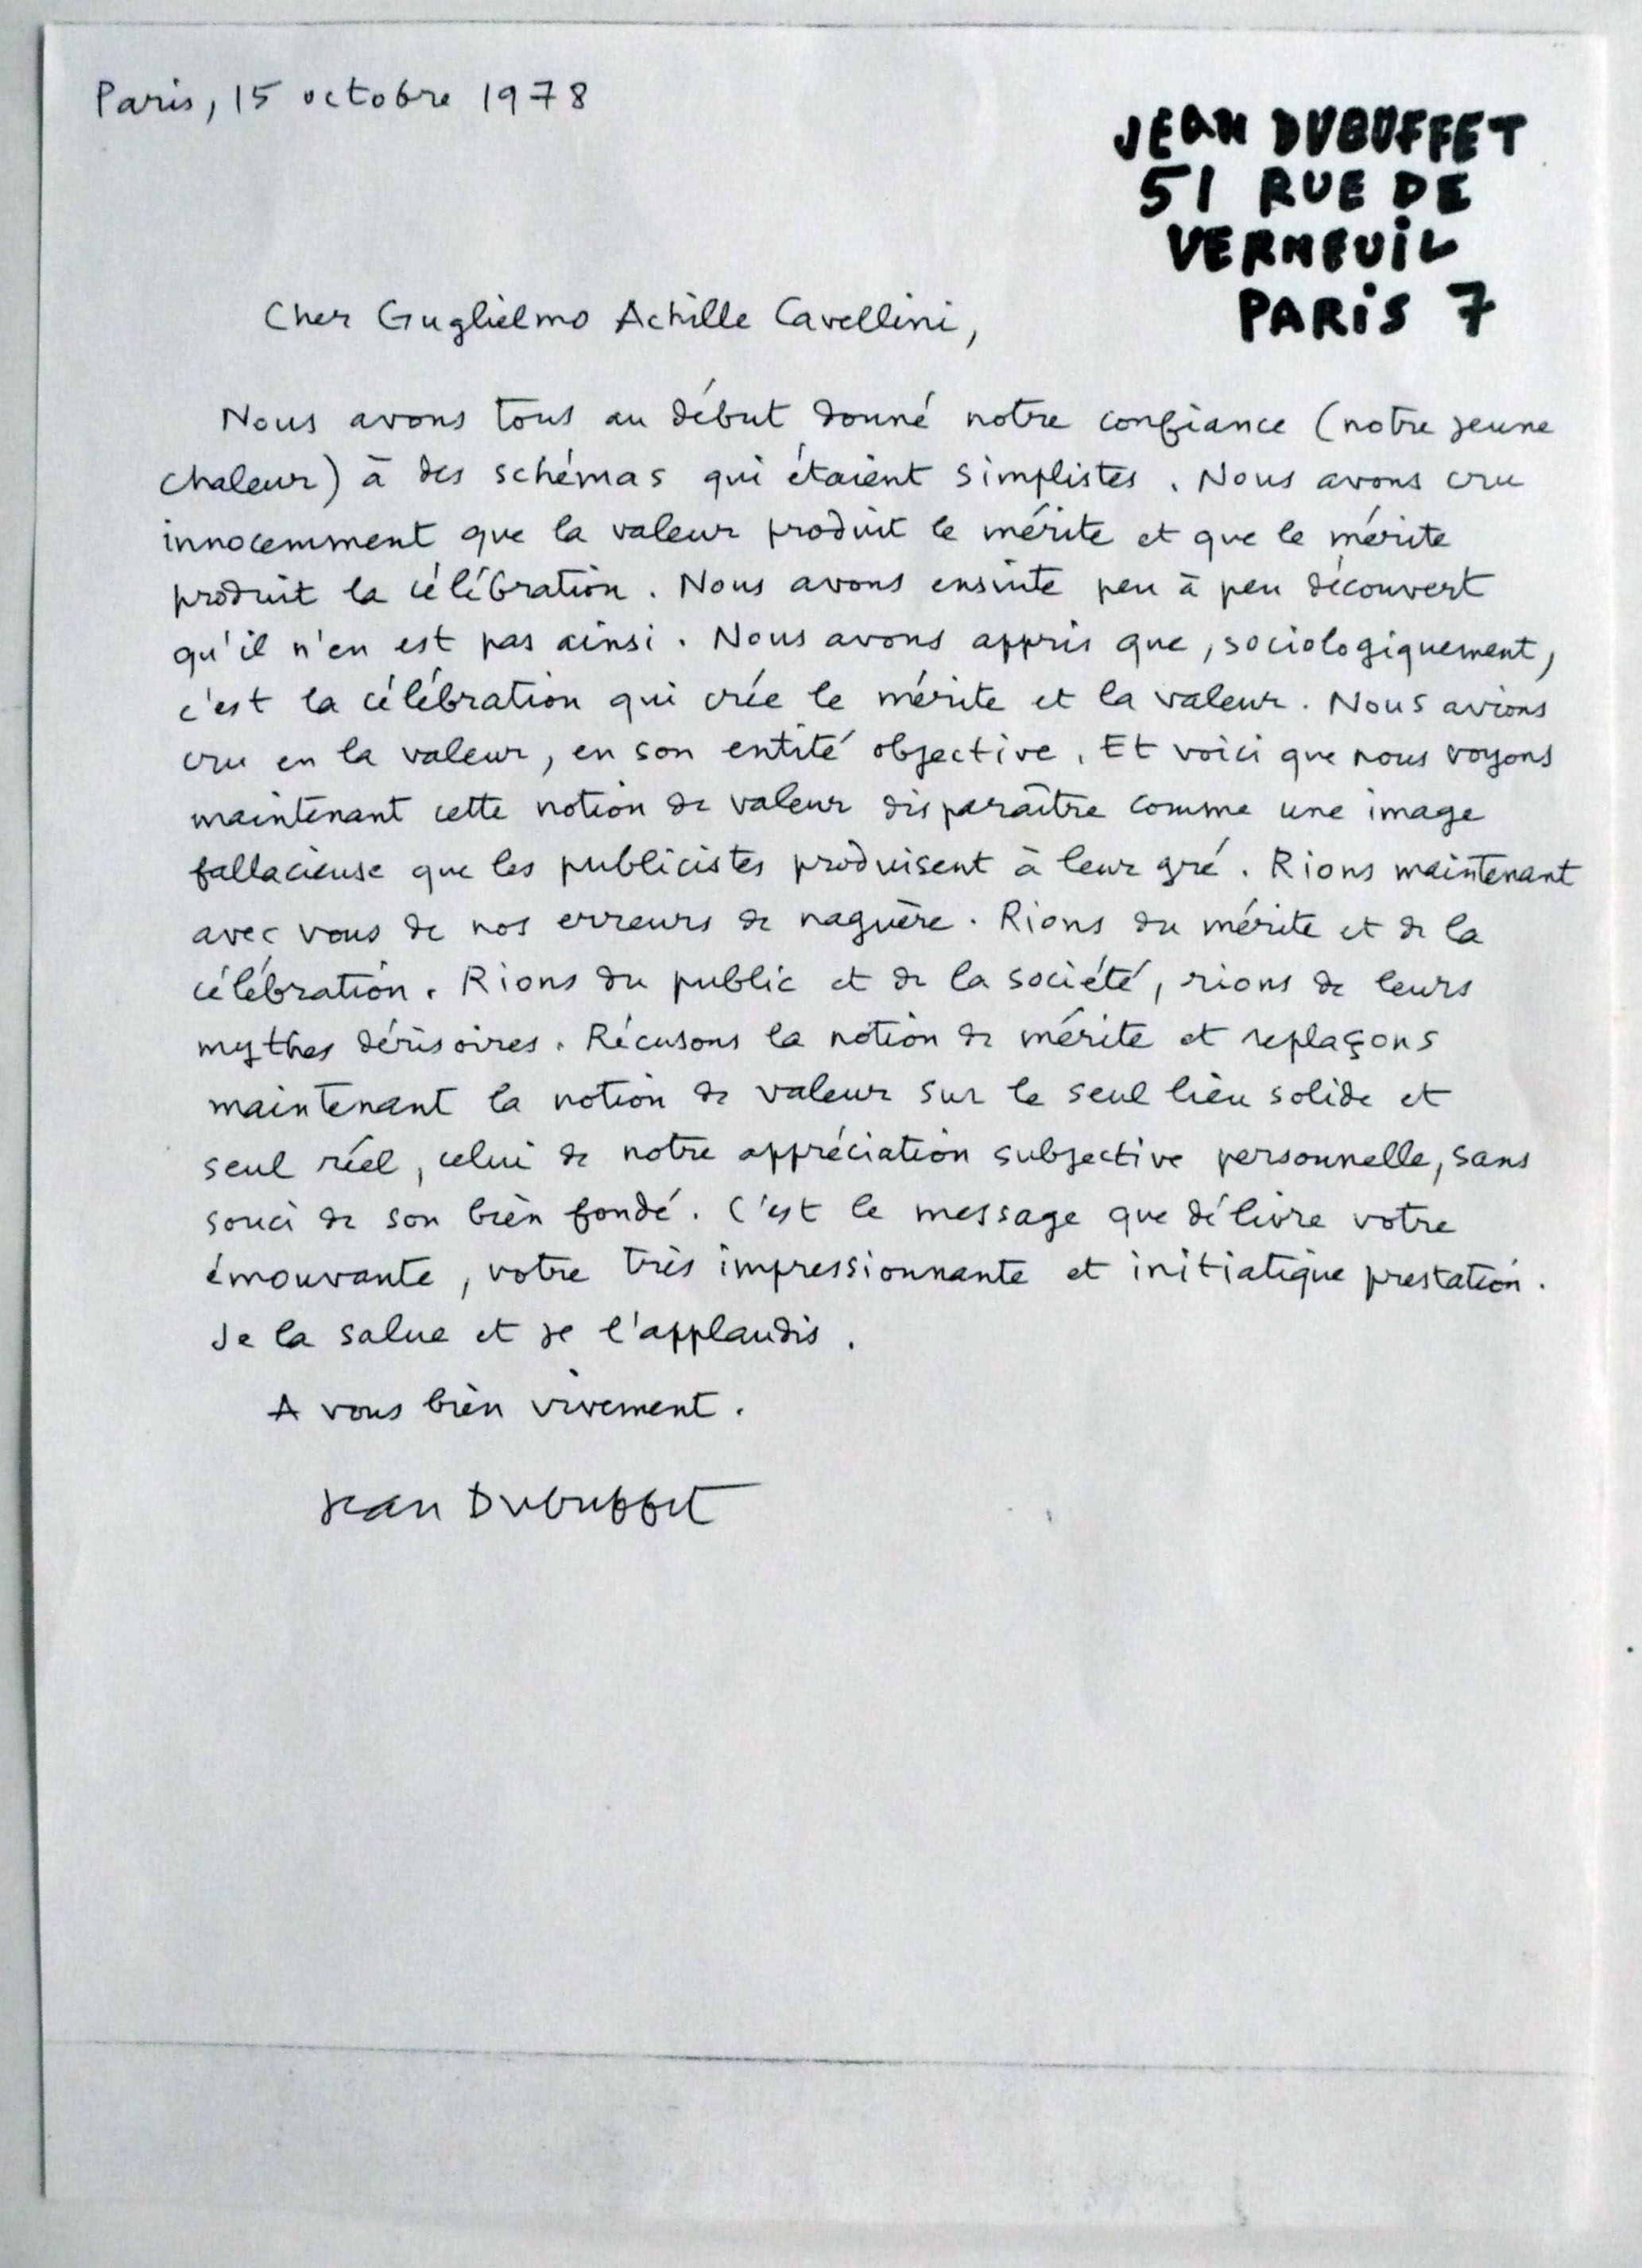 Paris, 15 octobre 1978
JEAN DUBUFFET
51 RUE DE
VERNEUIL
PARIS 7
Cher Guglielmo Achille Cavellini,
Nous avons tous au début donné notre confiance (notre jeune
chaleur) à des schémas qui étaient simplistes. Nous avons cru
innocemment que la valeur produit le mérite et que le mérite
produit la célébration. Nous avons ensuite peu à peu découvert
qu'il n'en est pas ainsi. Nous avons appris que, sociologiquement,
c'est la célébration qui crée le mérite et la valeur. Nous avions
cru en la valeur, en son entité objective. Et voici que nous voyons
maintenant cette notion de valeur disparaître comme une image
fallacieuse que les publicistes produisent à leur gré. Rions maintenant
avec vous de nos erreurs de naguère. Rions du mérite et de la
célébration. Rions du public et de la société, rions de leurs
mythes dérisoires. Récusons la notion de mérite et replaçons
maintenant la notion de valeur sur le seul lieu solide et
seul réel, celui de notre appréciation subjective personnelle, sans
souci de son bien fondé. C'est le message que délivre votre
émouvante, votre très impressionnante et initiatique prestation.
Je la salue et je l'applaudis.
A vous bien vivement.
Jean Dubuffet